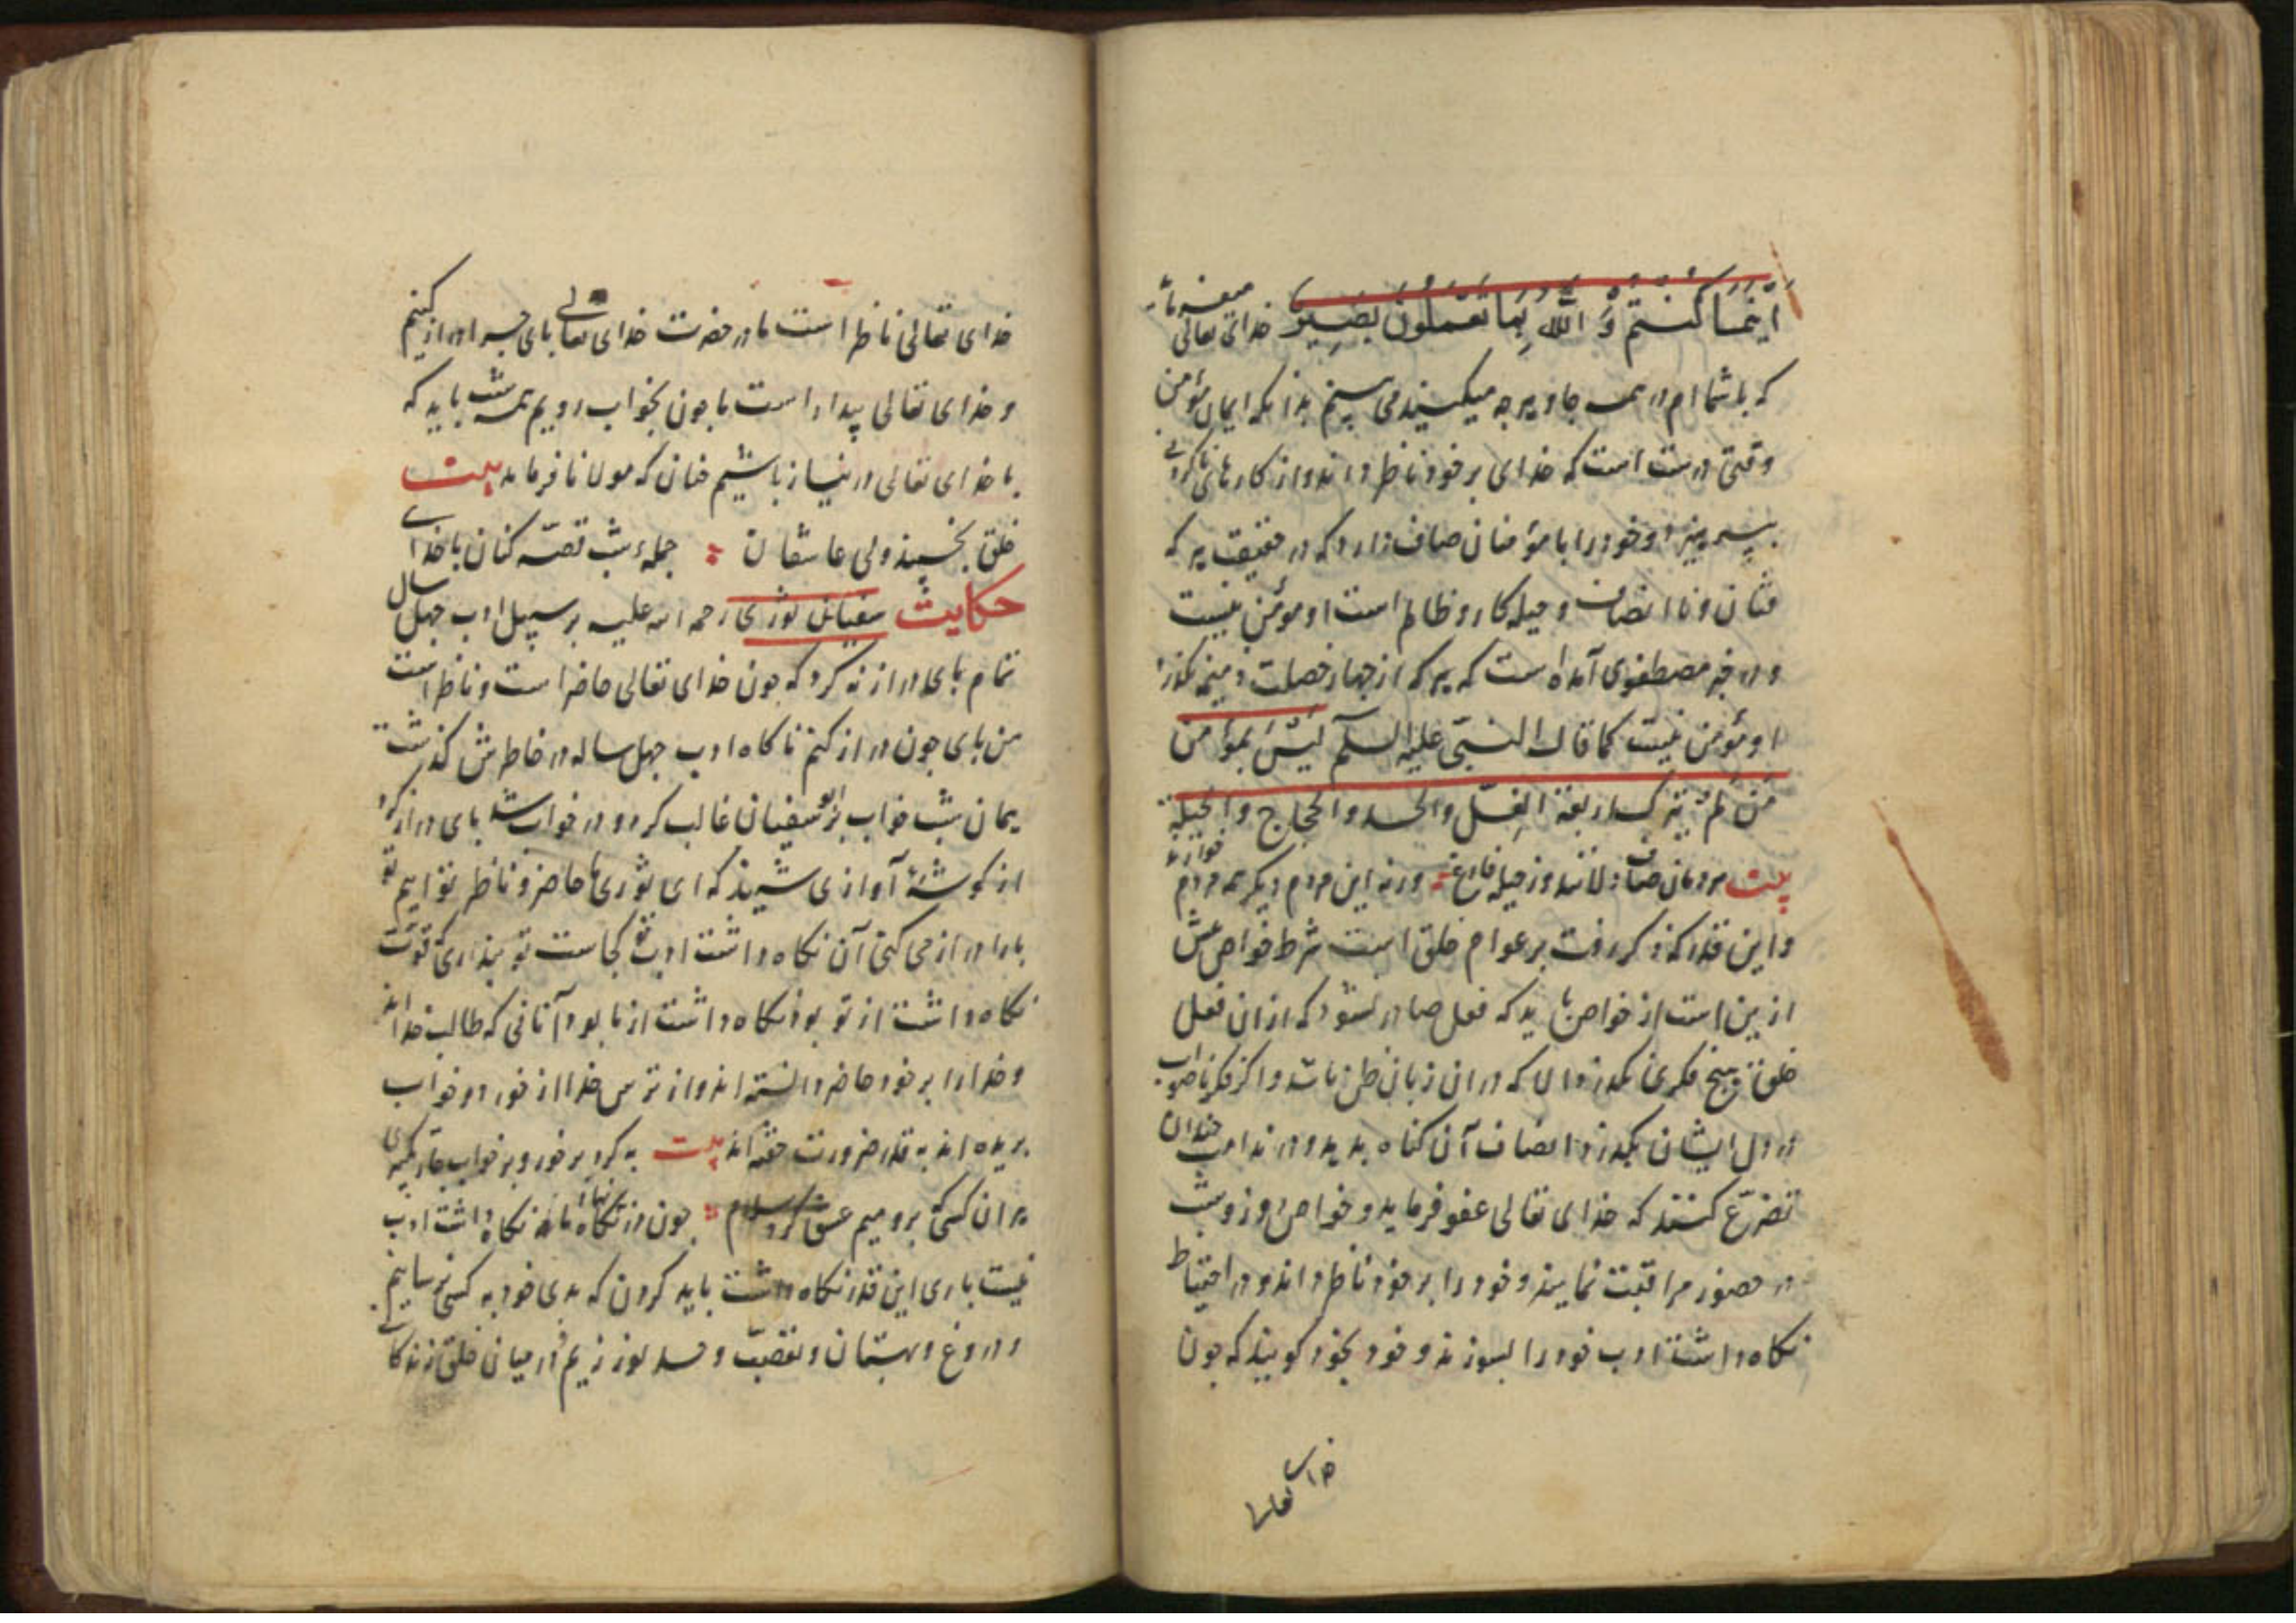 اَيْنَمَا كُنْتُمْ وَ اللّٰهُ بِمَا تَعْمَلُونَ بَصِيرٌ خدای تعالی میفرماید
که با شماام در همه جا و هرچه میکنید می بینم بدانکه ایمان مؤمن
وقتی درست است که خدای بر خود ناظر داند و از کارهای ناکردنی
بپرهیزد و خود را با مؤمنان صاف دارد که در حقیقت هر که
فتان و ناانصاف و حیله کار و ظالم است او مؤمن نیست
و در خبر مصطفوی آمده است که هر که از چهار خصلت ذمیمه نگذرد
او مؤمن نیست کما قال النبی علیه السلم لَیْسَ بمؤمن
مَن لم یترک اربعة الغِلّ والحسد والحجاج والحیلة
بیت مردمان صاف دلانند و ز حیله فارغ ورنه این مردم دیگر همه مردم خوارند
و این قدر که ذکر رفت بر عوام خلق است شرط خواص بیش
ازین است از خواص باید که فعل صادر نشود که از ان فعل
خلق برنجد فکری نکند والا که در ان زبان خلق باشد و اگر فکر ناصواب
در دل ایشان بگذرد انصاف آن گناه بدهد و در ندامت چندان
تضرّع کنند که خدای تعالی عفو فرماید و خواص روز و شب
در حضور مراقبت نمایند و خود را بر خود ناظر دانند و در احتیاط
نگاه داشت ادب خود را بسوزند و خود بخود گویند که چون
خدای تعالی
خدای تعالی ناظر است ما در حضرت خدای تعالی پای چرا دراز کنیم
و خدای تعالی بیدار است ما چون بخواب رویم همه شب باید که
با خدای تعالی در نیاز باشیم چنان که مولانا فرماید بیت
خلق بخسپند ولی عاشقان جمله شب قصّه کنان با خدای
حکایت سفیان ثوری رحمه الله علیه بر سبیل ادب چهل سال
تمام پای دراز نه کرد که چون خدای تعالی حاضر است و ناظر است
من پای چون دراز کنم ناگاه ادب چهل ساله در خاطرش گذشت
همان شب خواب بر سفیان غالب کرد و در خواب شد پای دراز کرد
از گوشه آوازی شنید که ای ثوری ما حاضر و ناظر توایم تو
پارا دراز می کنی آن نگاه داشت ادب تو کجاست تو پنداری قوّت
نگاه داشت از تو بود نگاه داشت از ما بود آنانی که طالب خدا اند
و خدا را بر خود حاضر دانسته اند و از ترس خدا از خور و خواب
بریده اند به قدر ضرورت خفته اند بیت به گرد بر خور و بر خواب چار تکبیری
بران کسی که برو میم عشق کرد سلام چون در نگاه ما نگاه داشت ادب
نیست باری این قدر نگاه داشت باید کردن که بدی خود به کسی نرسانیم
و دروغ و بهتان و تعصّب و حسد نورزیم و در میان خلق زندگانی